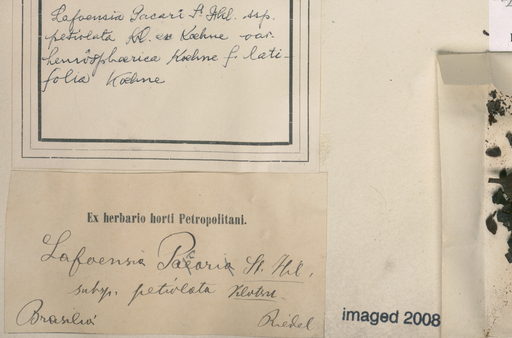 Lafoensia Pacari St Hil. ssp.
petiolata Kl. ex Kœhne var.
hemisphaerica Kœhne f. lati-
folia Kœhne
Ex herbario horti Petropolitani.
Lafoensia Pacaria St. Hil.
subsp. petiolata
Brasilia
Riedel
imaged 2008